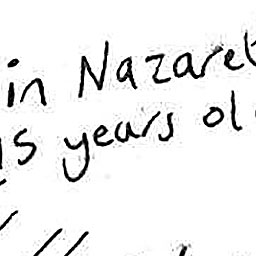 in Nazaret
15 years ol